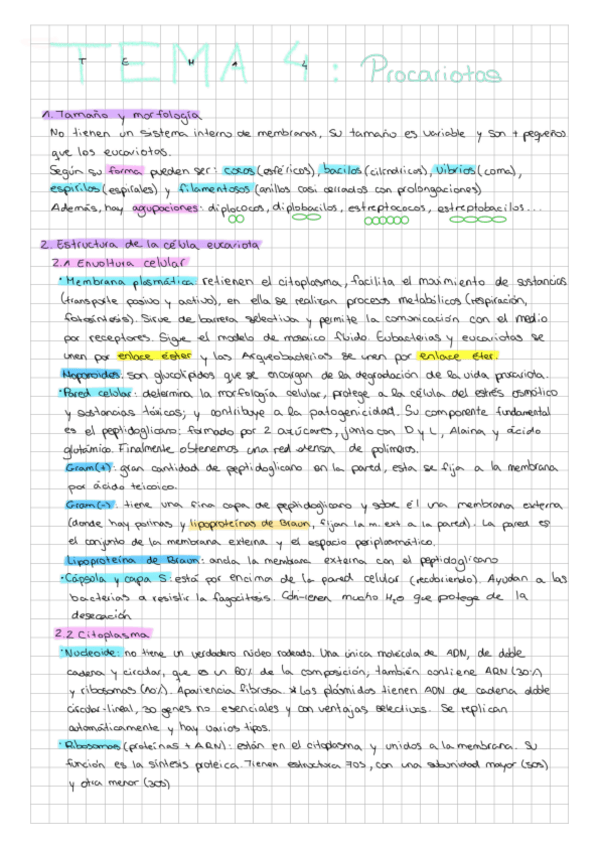 TEMA 4: Procariotas
1. Tamaño y morfología
No tienen un sistema interno de membranas, su tamaño es variable y son + pequeños
que los eucariotas.
Según su forma pueden ser: cocos (esféricos), bacilos (cilíndricos), vibrios (coma),
espirilos (espirales) y filamentosos (anillos casi cerrados con prolongaciones)
Además, hay agupaciones: diplococos, diplobacilos, estreptococos, estreptobacilos...
2. Estructura de la célula eucariota
2.1 Envoltura celular
·Membrana plasmática: retienen el citoplasma, facilita el movimiento de sustancias
(transporte pasivo y activo), en ella se realizan procesos metabólicos (respiración,
fotosíntesis). Sirve de barrera selectiva y permite la comunicación con el medio
por receptores. Sigue el modelo de mosaico fluido. Eubacterias y eucariotas se
unen por enlace éster y las Arqueobacterias se unen por enlace éter.
son glucolípidos que se encargan de la degradación de la vida procariota.
·Pared celular: determina la morfología celular, protege a la célula del estrés osmótico
y sustancias tóxicas; y contribuye a la patogenicidad. Su componente fundamental
es el peptidoglicano: formado por 2 azúcares, junto con D y L, Alaina y ácido
glutámico. Finalmente obtenemos una red extensa de polímeros.
Gram(+): gran cantidad de peptidoglicano en la pared, esta se fija a la membrana
por ácido teicoico.
Gram(-): tiene una fina capa de peptidoglicano y sobre él una membrana externa
(donde hay porinas y lipoproteínas de Braun, fijan la m. ext a la pared). La pared es
el conjunto de la membrana externa y el espacio periplasmático.
Lipoproteína de Braun: ancla la membrana externa con el peptidoglicano
·Cápsula y capa S: está por encima de la pared celular (recubriendo). Ayudan a las
bacterias a resistir la fagocitosis. Contienen mucho H₂O que protege de la
desecación
2.2 Citoplasma
·Nucleoide: no tiene un verdadero núcleo rodeado. Una única molécula de ADN, de doble
cadena y circular, que es un 60% de la composición, también contiene ARN (30%)
y ribosomas (10%). Apariencia fibrosa. *Los plásmidos tienen ADN de cadena doble
circular-lineal, 30 genes no esenciales y con ventajas selectivas. Se replican
automáticamente y hay varios tipos.
·Ribosomas (proteínas + ARN): están en el citoplasma y unidos a la membrana. Su
función es la síntesis proteica. Tienen estructura 70S, con una subunidad mayor (50S)
y otra menor (30S)